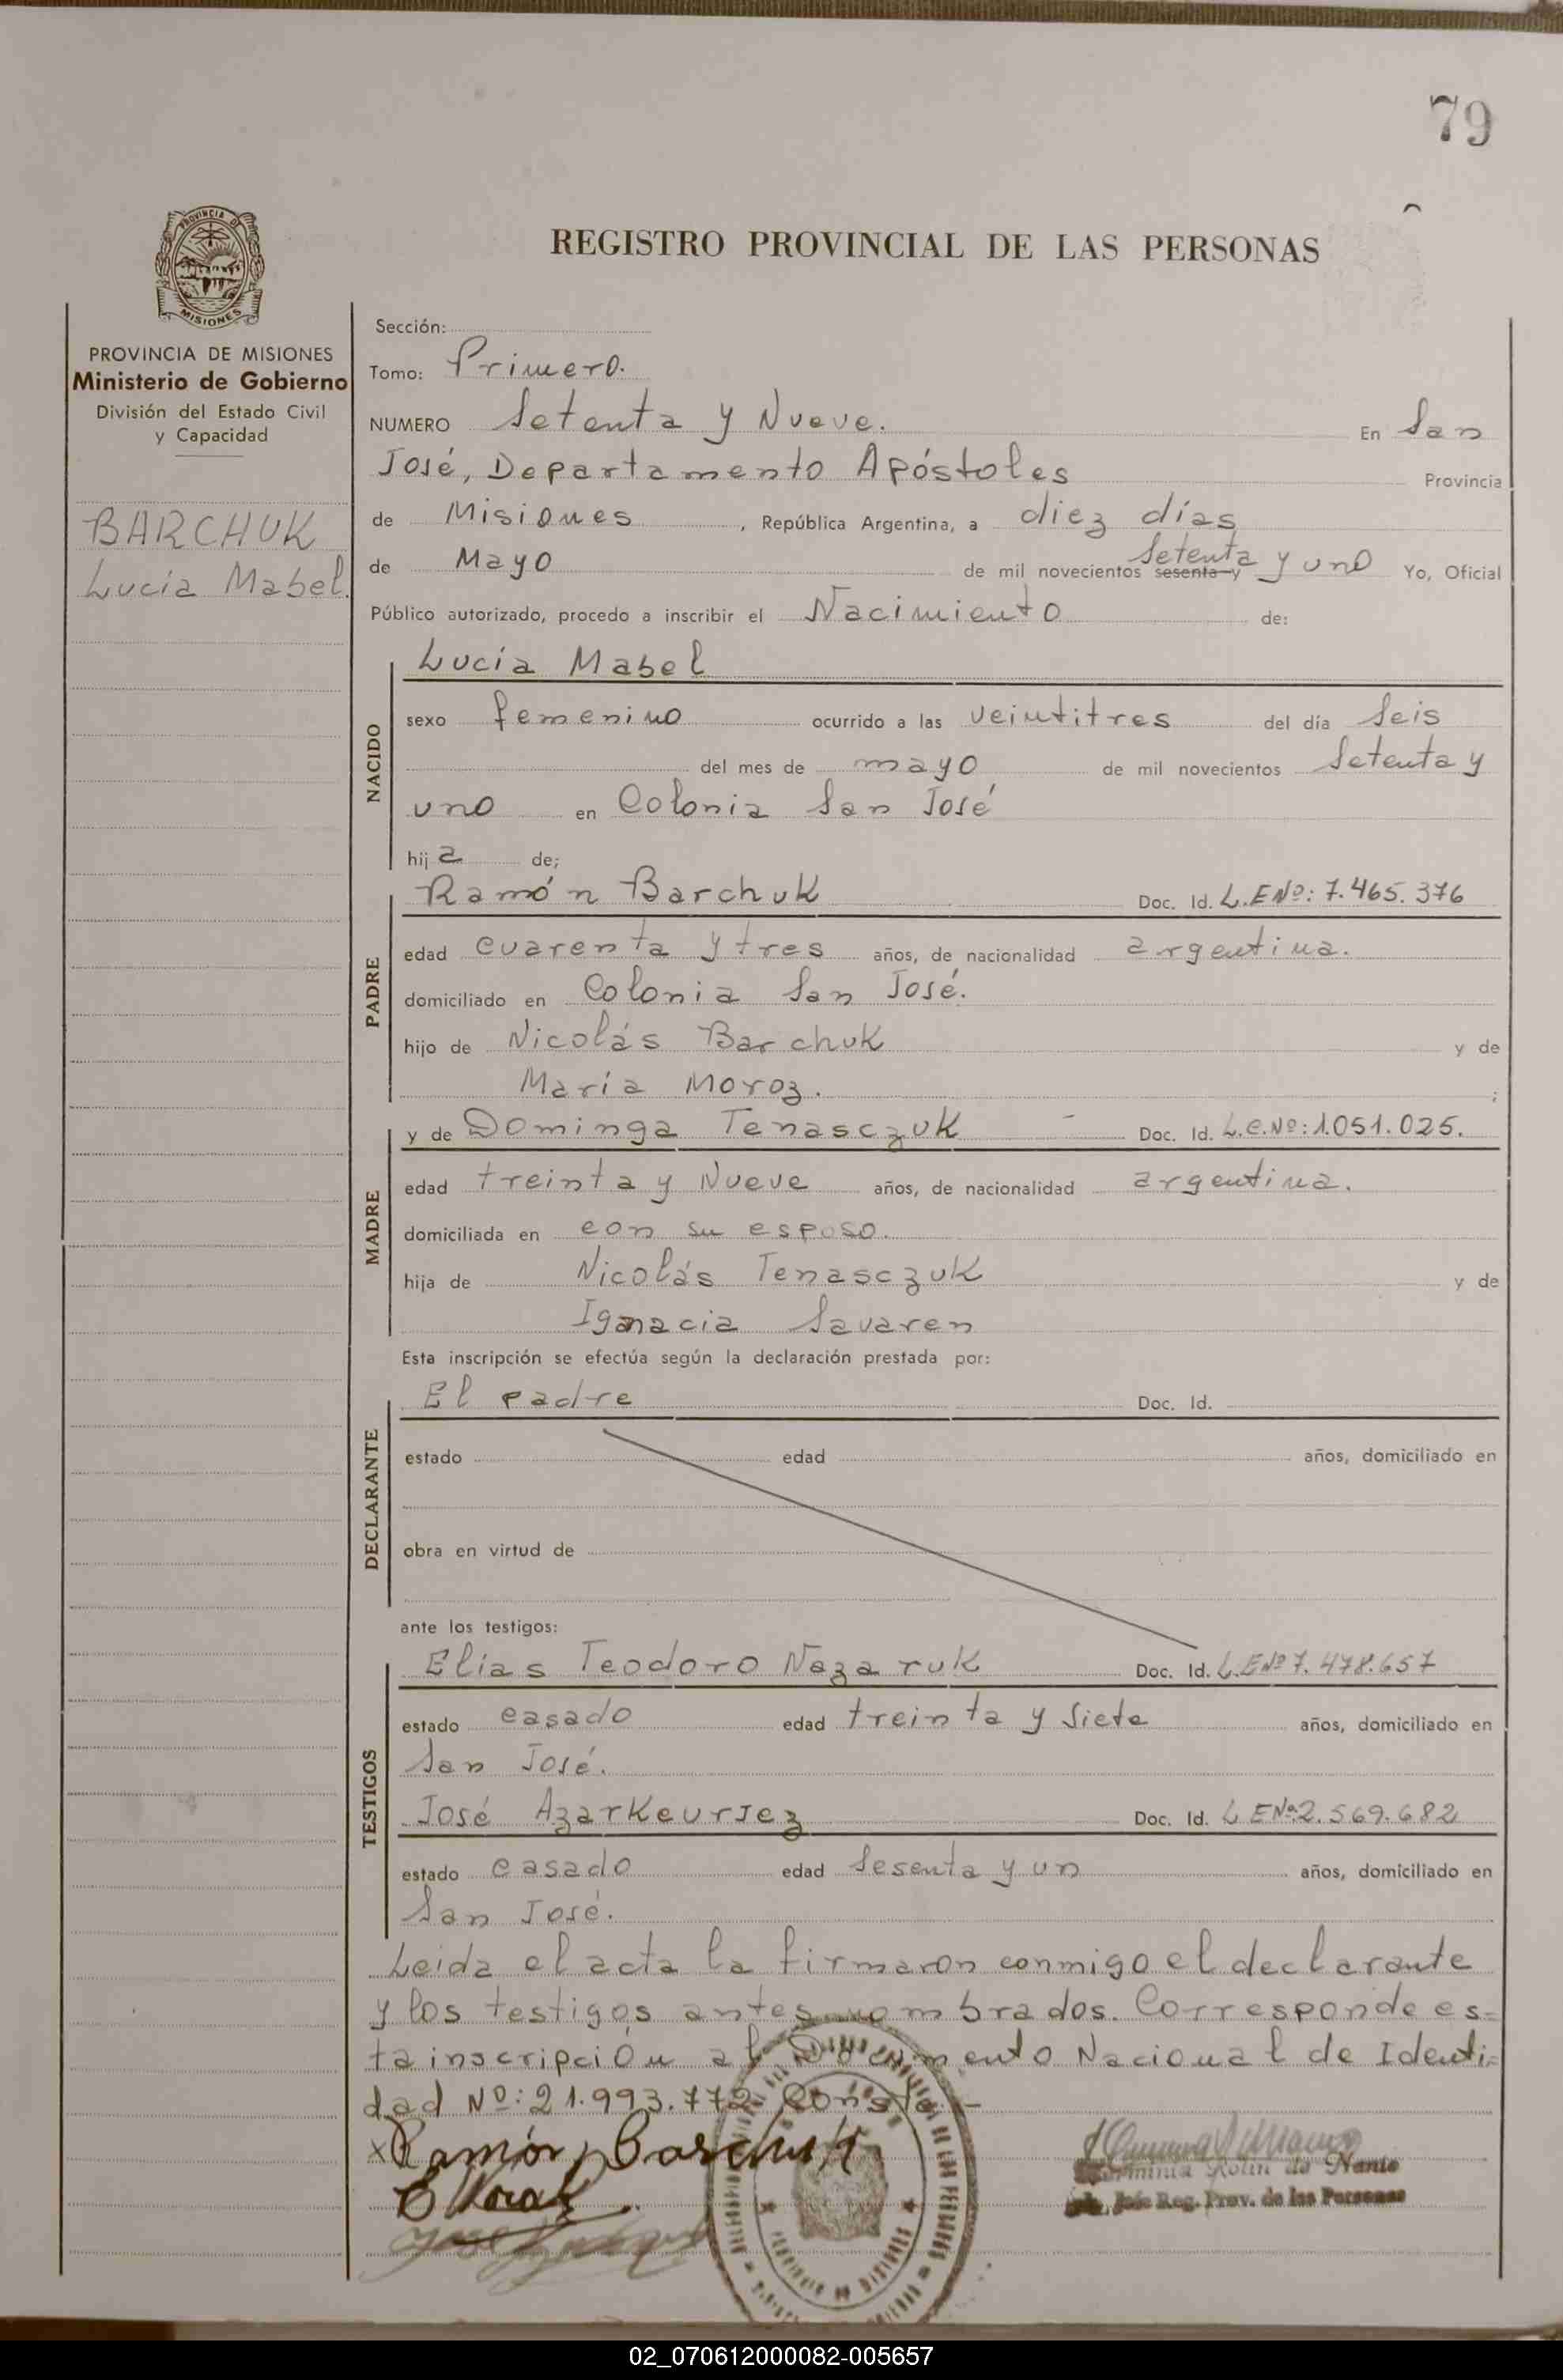 79
REGISTRO PROVINCIAL DE LAS PERSONAS
PROVINCIA DE MISIONES
PROVINCIA DE MISIONES
Ministerio de Gobierno
División del Estado Civil
y Capacidad
BARCHUK
Lucía Mabel.
Sección:
Tomo: Primero.
NUMERO Setenta y Nueve. En San
José, Departamento Apóstoles Provincia
de Misiones, República Argentina, a diez días
de Mayo de mil novecientos sesenta y Setenta y uno Yo, Oficial
Público autorizado, procedo a inscribir el Nacimiento de:
NACIDO
Lucía Mabel
sexo femenino ocurrido a las veintitres del día Seis
del mes de mayo de mil novecientos Setenta y
uno en Colonia San José
hija de;
PADRE
Ramón Barchuk Doc. Id. L.E Nº: 7.465.376
edad cuarenta y tres años, de nacionalidad argentina.
domiciliado en Colonia San José.
hijo de Nicolás Barchuk y de
María Moroz. ;
MADRE
y de Dominga Tenasczuk Doc. Id. L.C.Nº: 1.051.025.
edad treinta y Nueve años, de nacionalidad argentina.
domiciliada en con su esposo.
hija de Nicolás Tenasczuk y de
Ignacia Savaren
Esta inscripción se efectúa según la declaración prestada por:
DECLARANTE
El padre Doc. Id.
estado edad años, domiciliado en
obra en virtud de
ante los testigos:
TESTIGOS
Elias Teodoro Nazaruk Doc. Id. L.E Nº 7.478.657
estado casado edad treinta y Siete años, domiciliado en
San José.
José Azarkeursez Doc. Id. L E Nº: 2.569.682
estado casado edad Sesenta y un años, domiciliado en
San José.
Leida el acta la firmaron conmigo el declarante
y los testigos antes nombrados. Corresponde es-
ta inscripción al Documento Nacional de Identi-
dad Nº: 21.993.772 Conste.-
x Ramón Barchuk
Rolin de Nante
Jefe Reg. Prov. de las Personas
02_070612000082-005657